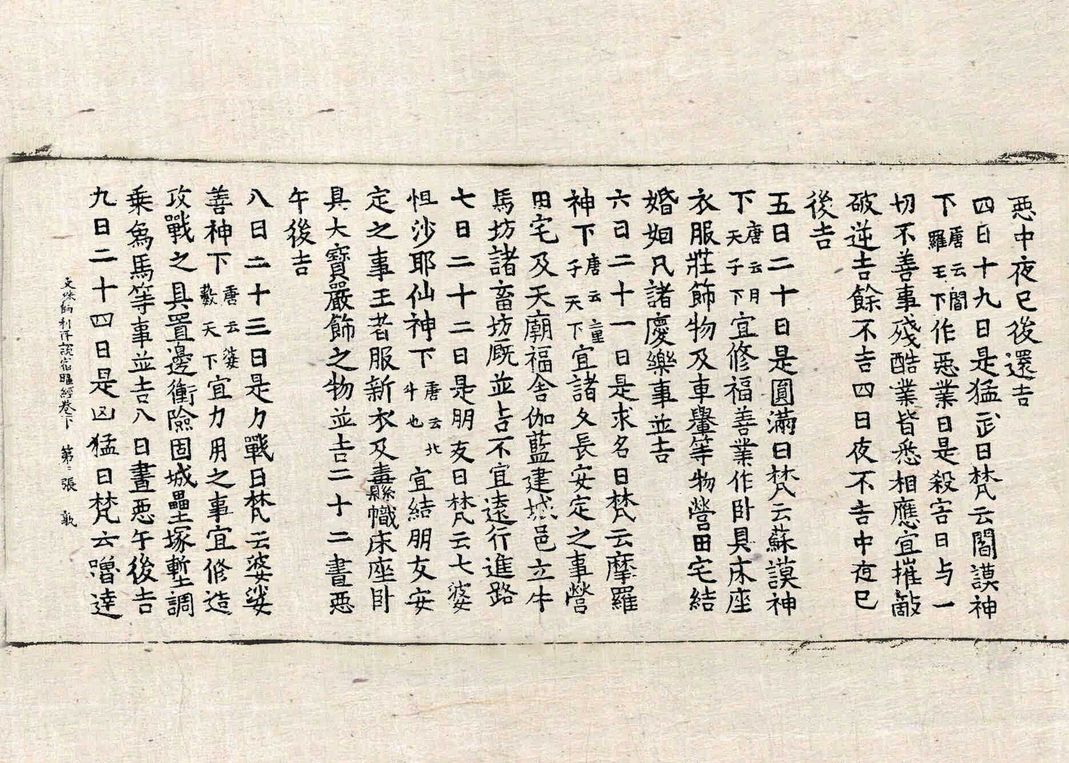 惡中夜已後還吉
四日十九日是猛武日梵云閻謨神
下唐云閻羅王下作惡業日是殺害日与一
切不善事殘酷業皆悉相應宜摧敵
破逆吉餘不吉四日夜不吉中夜已
後吉
五日二十日是圓滿日梵云蘇謨神
下唐云月天子下宜修福善業作卧具床座
衣服莊飾物及車轝等物營田宅結
婚姻凡諸慶樂事並吉
六日二十一日是求名日梵云摩羅
神下唐云童子天下宜諸久長安定之事營
田宅及天廟福舍伽藍建城邑立牛
馬坊諸畜坊厩並吉不宜遠行進路
七日二十二日是朋友日梵云七婆
怛沙耶仙神下唐云北斗也宜結朋友安
定之事王者服新衣及纛幟床座卧
具大寶嚴飾之物並吉二十二晝惡
午後吉
八日二十三日是力戰日梵云婆娑
善神下唐云婆藪天下宜力用之事宜修造
攻戰之具置邊衝險固城壘塚塹調
乘象馬等事並吉八日晝惡午後吉
文殊師利所說宿曜經卷下 第三張
九日二十四日是凶猛日梵云嚕達